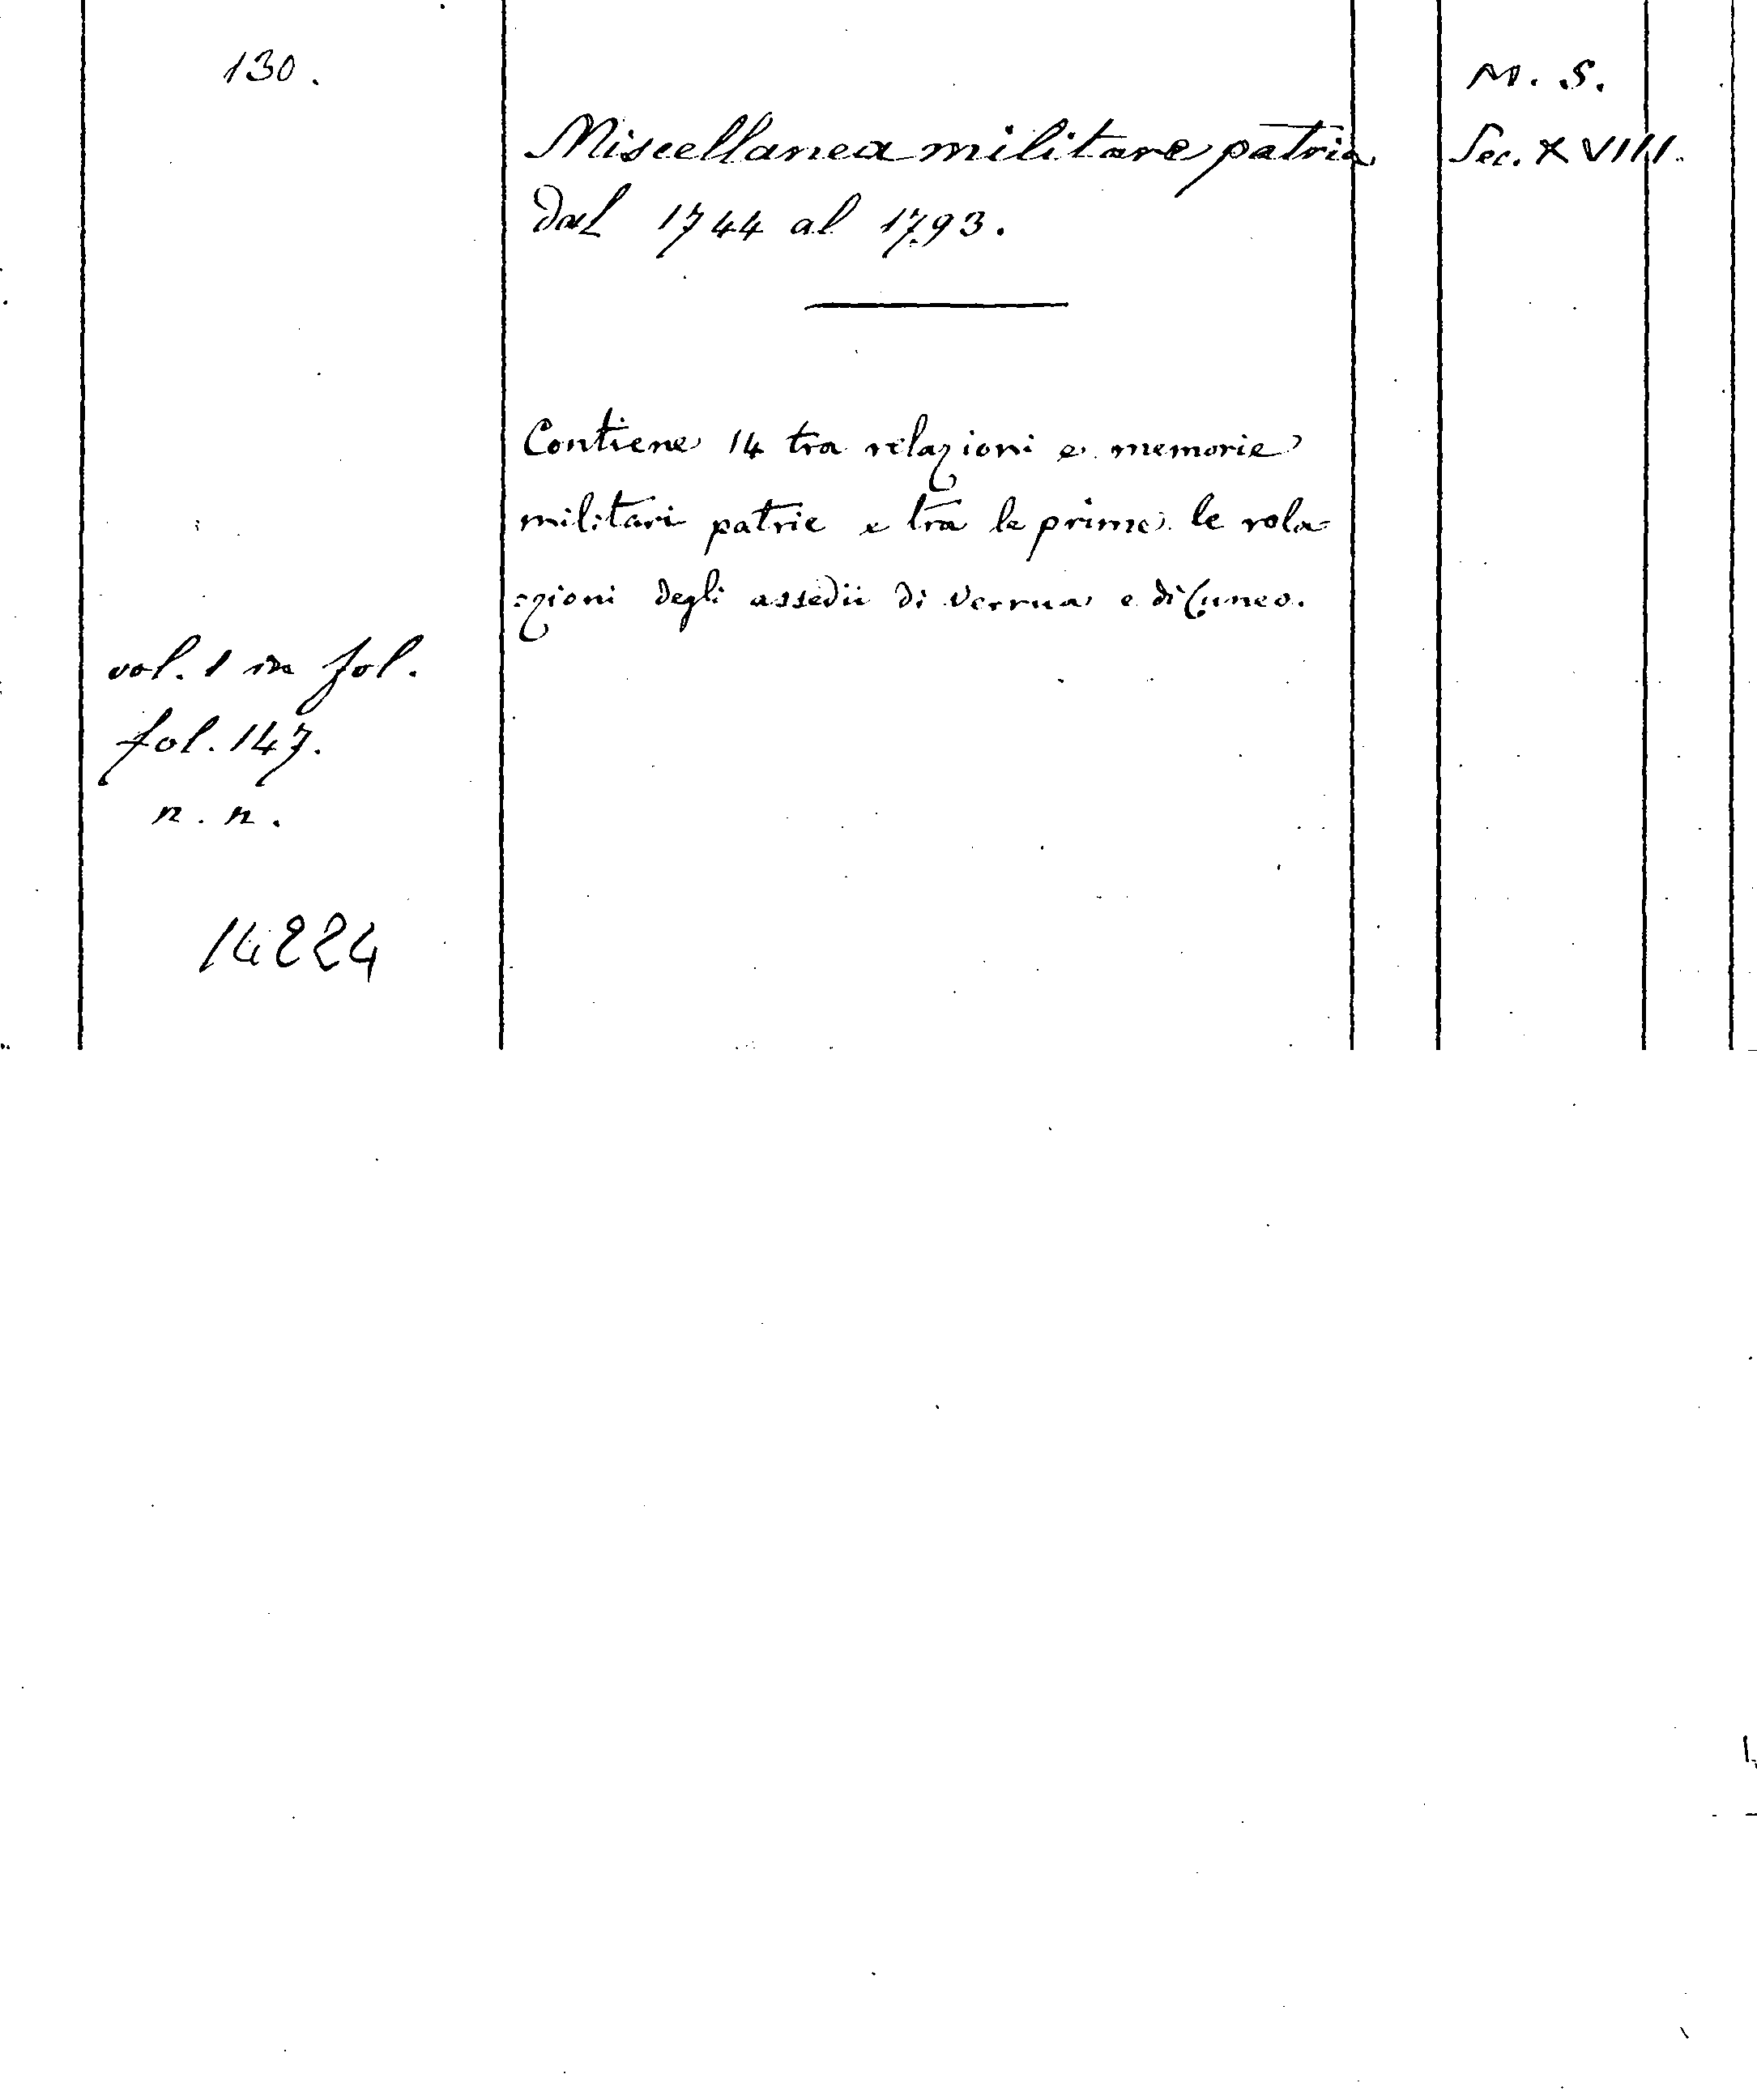 130.
M. S.
Miscellanea militare patria
Sec. XVIII.
dal 1744 al 1793.
Contiene 14 tra relazioni e memorie
militari patrie e tra le prime le rela=
=zioni degli assedii di Verrua e di Cuneo.
vol. 1 in fol.
fol. 147.
n. n.
14224